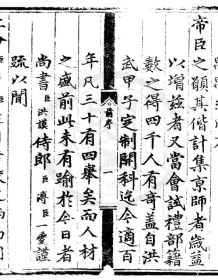 帝臣之願其偕計集京師者歲益
以增茲者又當會試禮部籍
數之得四千人有奇蓋自洪
武甲子定制開科迄今適百
年凡三十有四舉矣而人材
之盛前此未有踰於今日者
尚書臣洪謨侍郎臣溥臣一夔謹
疏以聞
前序
一